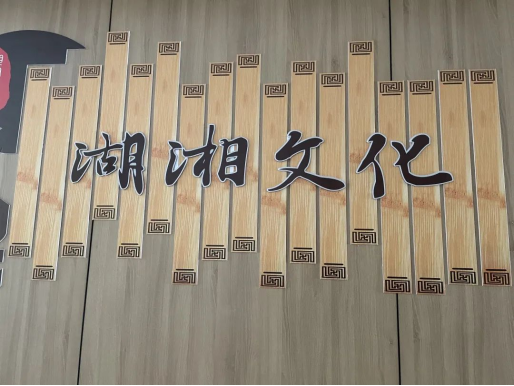 湖湘文化